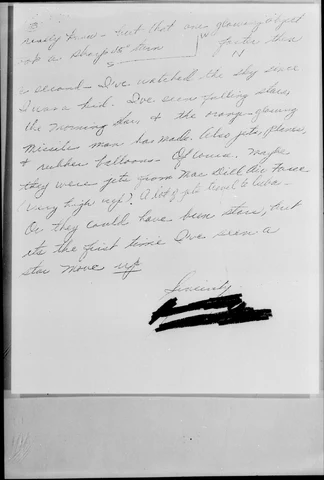 but that one glowing object
took a sharp turn faster than
S W N
a second - I've watched the sky since
I was a kid. I've seen falling stars
the morning star & the orange-glowing
missiles man has made. Also jets, planes,
& rubber balloons - Of course, maybe
they were jets from Mac Dill Air Force
(very high up?) A lot of jets to Cuba -
Or they could have been stars, but
its the first time I've seen a
star move up
Sincerely